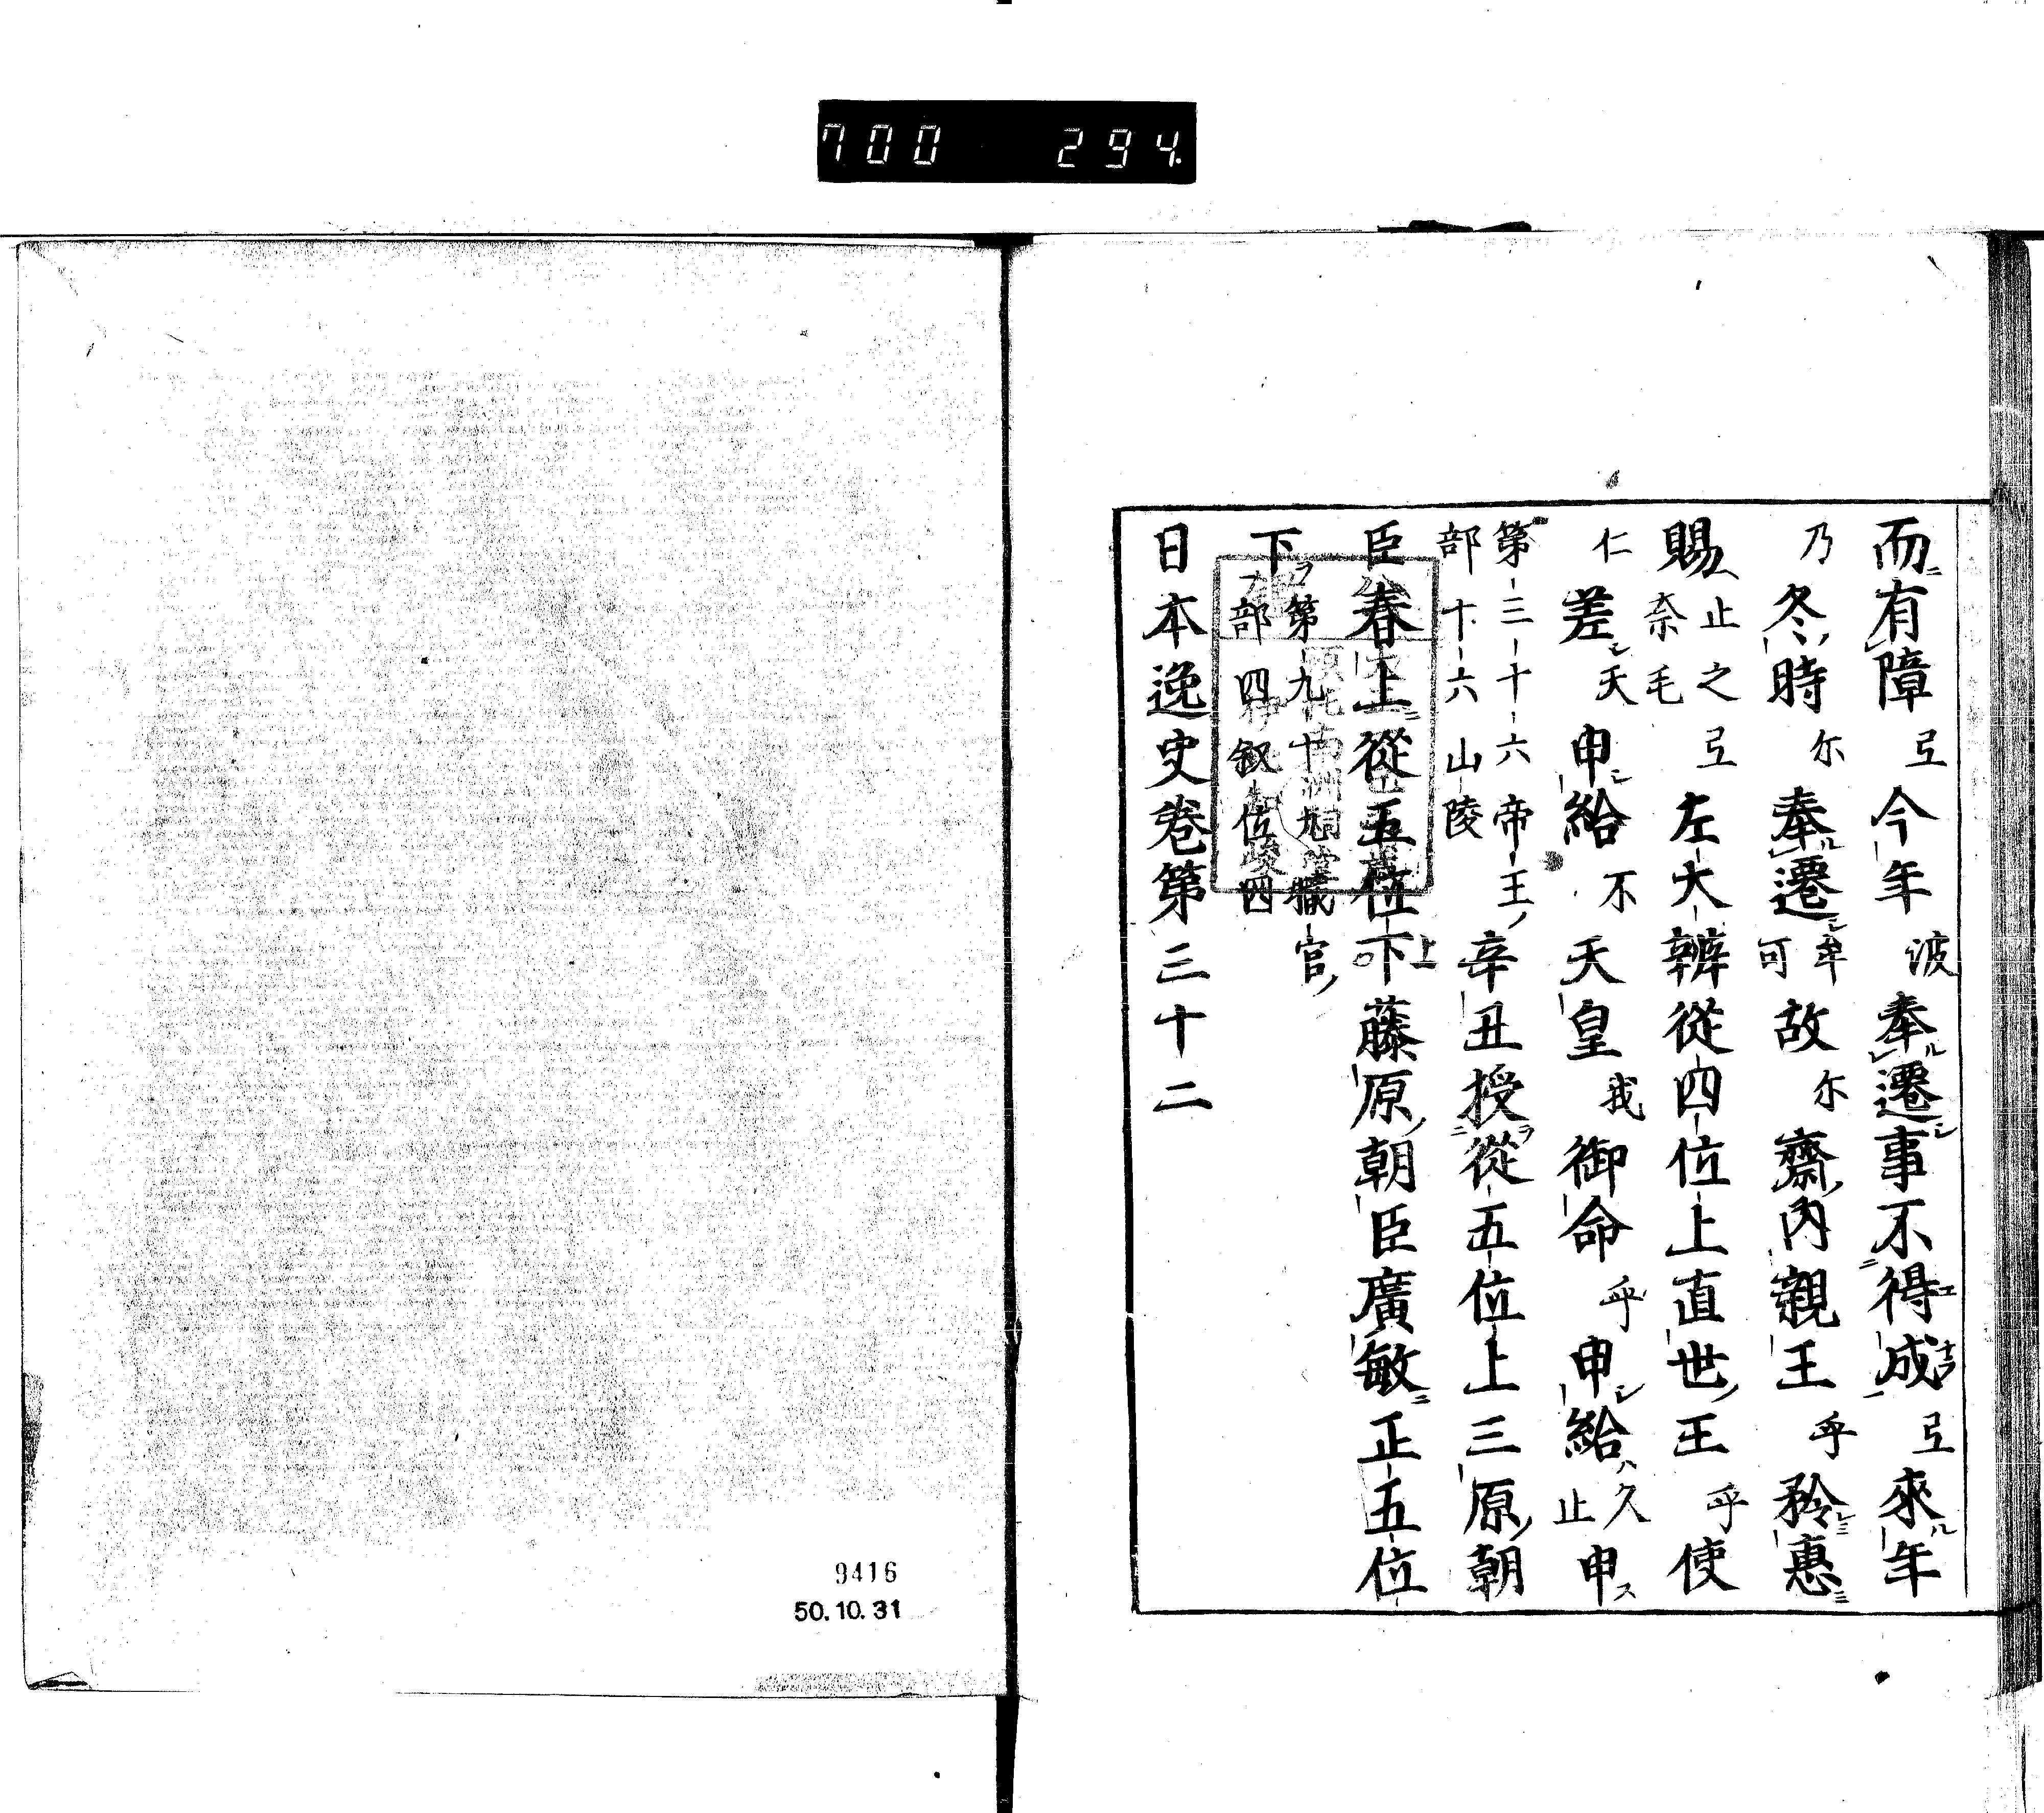 700 294.
而有障弖今年波奉遷事不得成弖來年
乃冬時尓奉遷牟可故尓齋内親王乎矜惠
賜止之弖奈毛左大辨從四位上直世王乎使
仁差天申給不天皇我御命乎申給久止申
第三十六帝王部十六山陵辛丑授從五位上三原朝
臣春上從五位下藤原朝臣廣敏正五位
下第九十九職官部四叙位四
日本逸史卷第三十二
9416
50.10.31